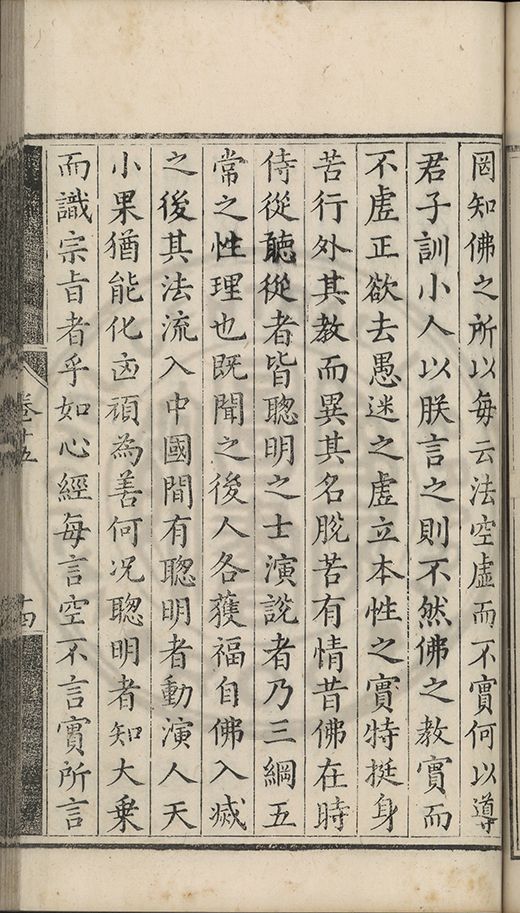 罔知佛之所以每云法空虛而不實何以導
君子訓小人以朕言之則不然佛之教實而
不虛正欲去愚迷之虛立本性之實特挺身
苦行外其教而異其名脫苦有情昔佛在時
侍從聽從者皆聰明之士演說者乃三綱五
常之性理也既聞之後人各獲福自佛入滅
之後其法流入中國間有聰明者動演人天
小果猶能化凶頑為善何况聰明者知大乗
而識宗旨者乎如心經每言空不言實所言
卷十五
十四